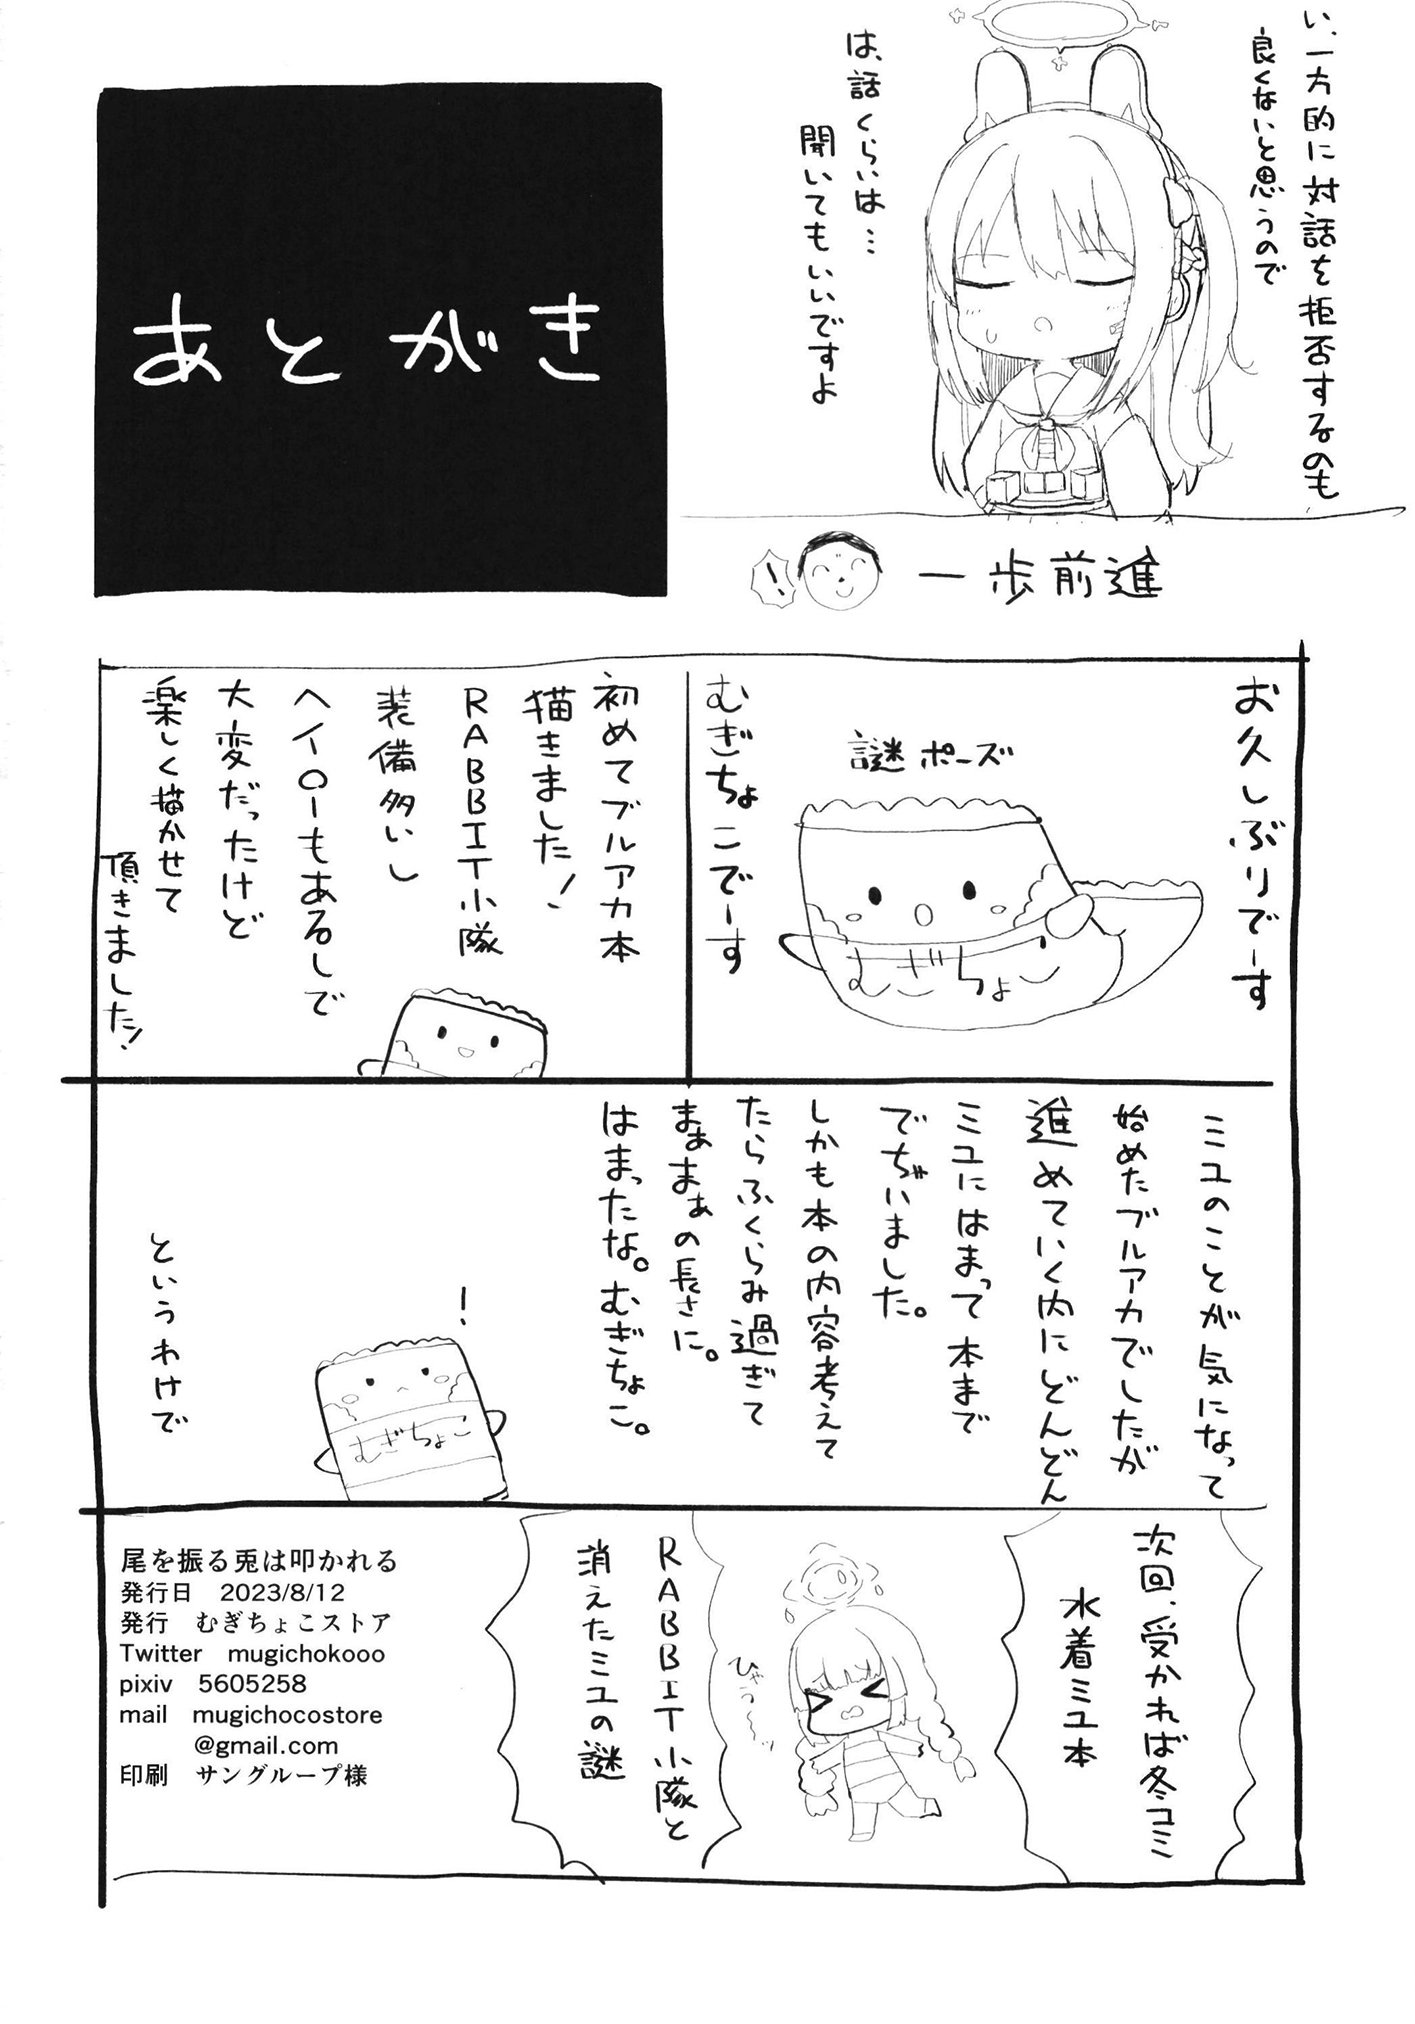 い、一方的に対話を拒否するのも
良くないと思うので
は、話くらいは…
聞いてもいいですよ
あとがき
！
一歩前進
お久しぶりでーす
謎ポーズ
むぎちょこ
むぎちょこでーす
初めてブルアカ本
描きました！
RABBIT小隊
装備多いし
ヘイローもあるしで
大変だったけど
楽しく描かせて
頂きました！
ミユのことが気になって
始めたブルアカでしたが
進めていく内にどんどん
ミユにはまって本まで
でぢいました。
しかも本の内容考えて
たらふくらみ過ぎて
まぁまぁの長さに。
はまったな。むぎちょこ。
！
むぎちょこ
というわけで
次回、受かれば冬コミ
水着ミユ本
ひゃっ〜
RABBIT小隊と
消えたミユの謎
尾を振る兎は叩かれる
発行日　2023/8/12
発行　むぎちょこストア
Twitter　mugichokooo
pixiv　5605258
mail　mugichocostore
@gmail.com
印刷　サングループ様